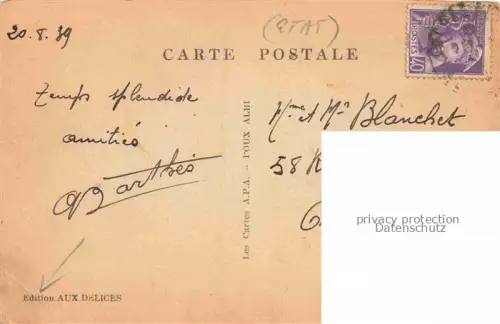 20.8.39
(ETAT)
CARTE POSTALE
POSTES
40
temps splendide
amitiés
Barthés
Les Cartes A.P.A. - POUX ALBI
Mme et Mr Blanchet
58
privacy protection
Datenschutz
Edition AUX DÉLICES